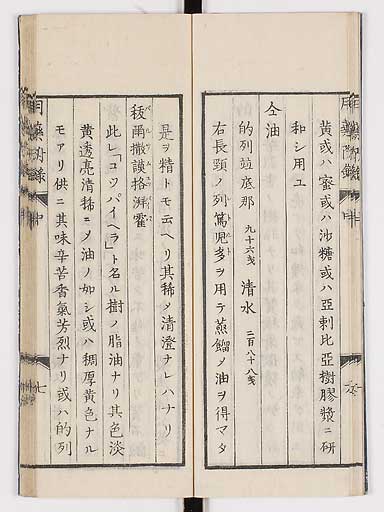 黄或ハ蜜或ハ沙糖或ハ亞剌比亞樹膠漿ニ研
和シ用ユ
仝油
的列並底那 九十六戔 清水 二百八十八戔
右長頸ノ列篤児多ヲ用テ蒸餾メ油ヲ得マタ
是ヲ精トモ云ヘリ其稀メ清澄ナレハナリ
拔爾撒謨格湃霍
此レ「コツパイヘラ」ト名ル樹ノ脂油ナリ其色淡
黄透亮清稀ニメ油ノ如シ或ハ稠厚黄色ナル
モアリ供ニ其味辛苦香氣芳烈ナリ或ハ的列